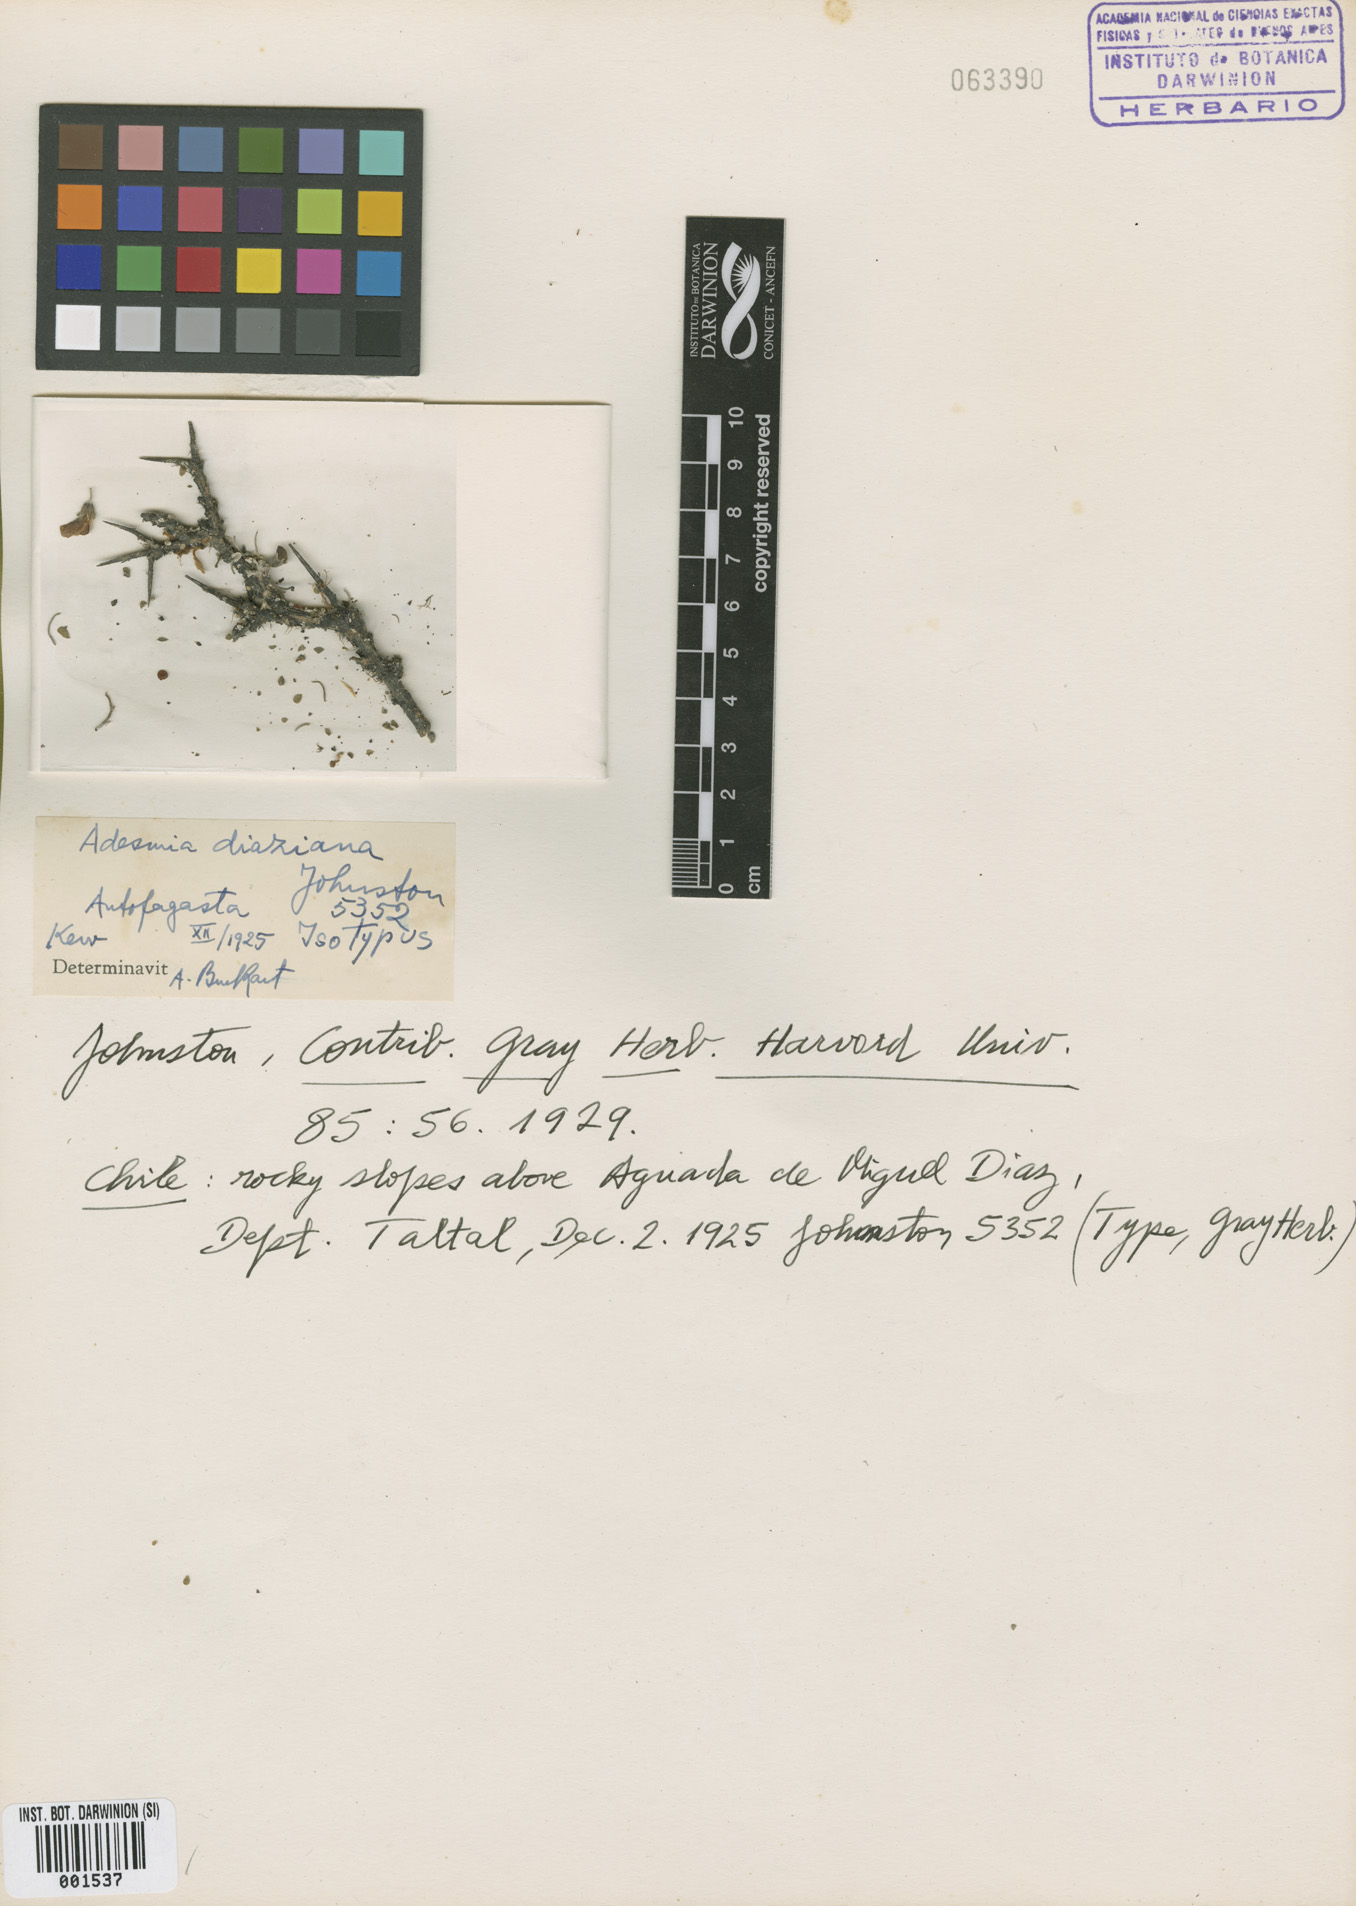 063390
ACADEMIA NACIONAL de CIENCIAS EXACTAS
FISICAS y de BUENOS AIRES
INSTITUTO de BOTANICA
DARWINION
HERBARIO
INSTITUTO DE BOTANICA
DARWINION
CONICET - ANCEFN
copyright reserved
10
9
8
7
6
5
4
3
2
1
0
cm
Adesmia diaziana
Johnston
Antofagasta 5352
Kew XII/1925 Isotypus
Determinavit A. Burkart
Johnston, Contrib. Gray Herb. Harvard Univ.
85: 56. 1929.
Chile: rocky slopes above Aguada de Miguel Diaz,
Dept. Taltal, Dec. 2. 1925 Johnston 5352 (Type, Gray Herb.)
INST. BOT. DARWINION (SI)
001537